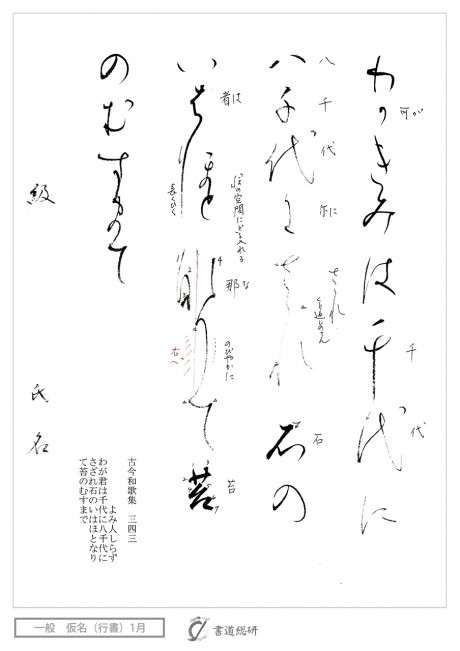 わ可きみは千代に
可が
千
代
八千代尓さゝれ石の
八
千
代
尓に
石
い者ほと那りて苔
者は
長くひく
那な
のびやかに
右へ
苔
のむすまて
級 氏名
古今和歌集 三四三
よみ人しらず
わが君は千代に八千代に
さざれ石のいはほとなり
て苔のむすまで
一般 仮名（行書）1月
書道総研